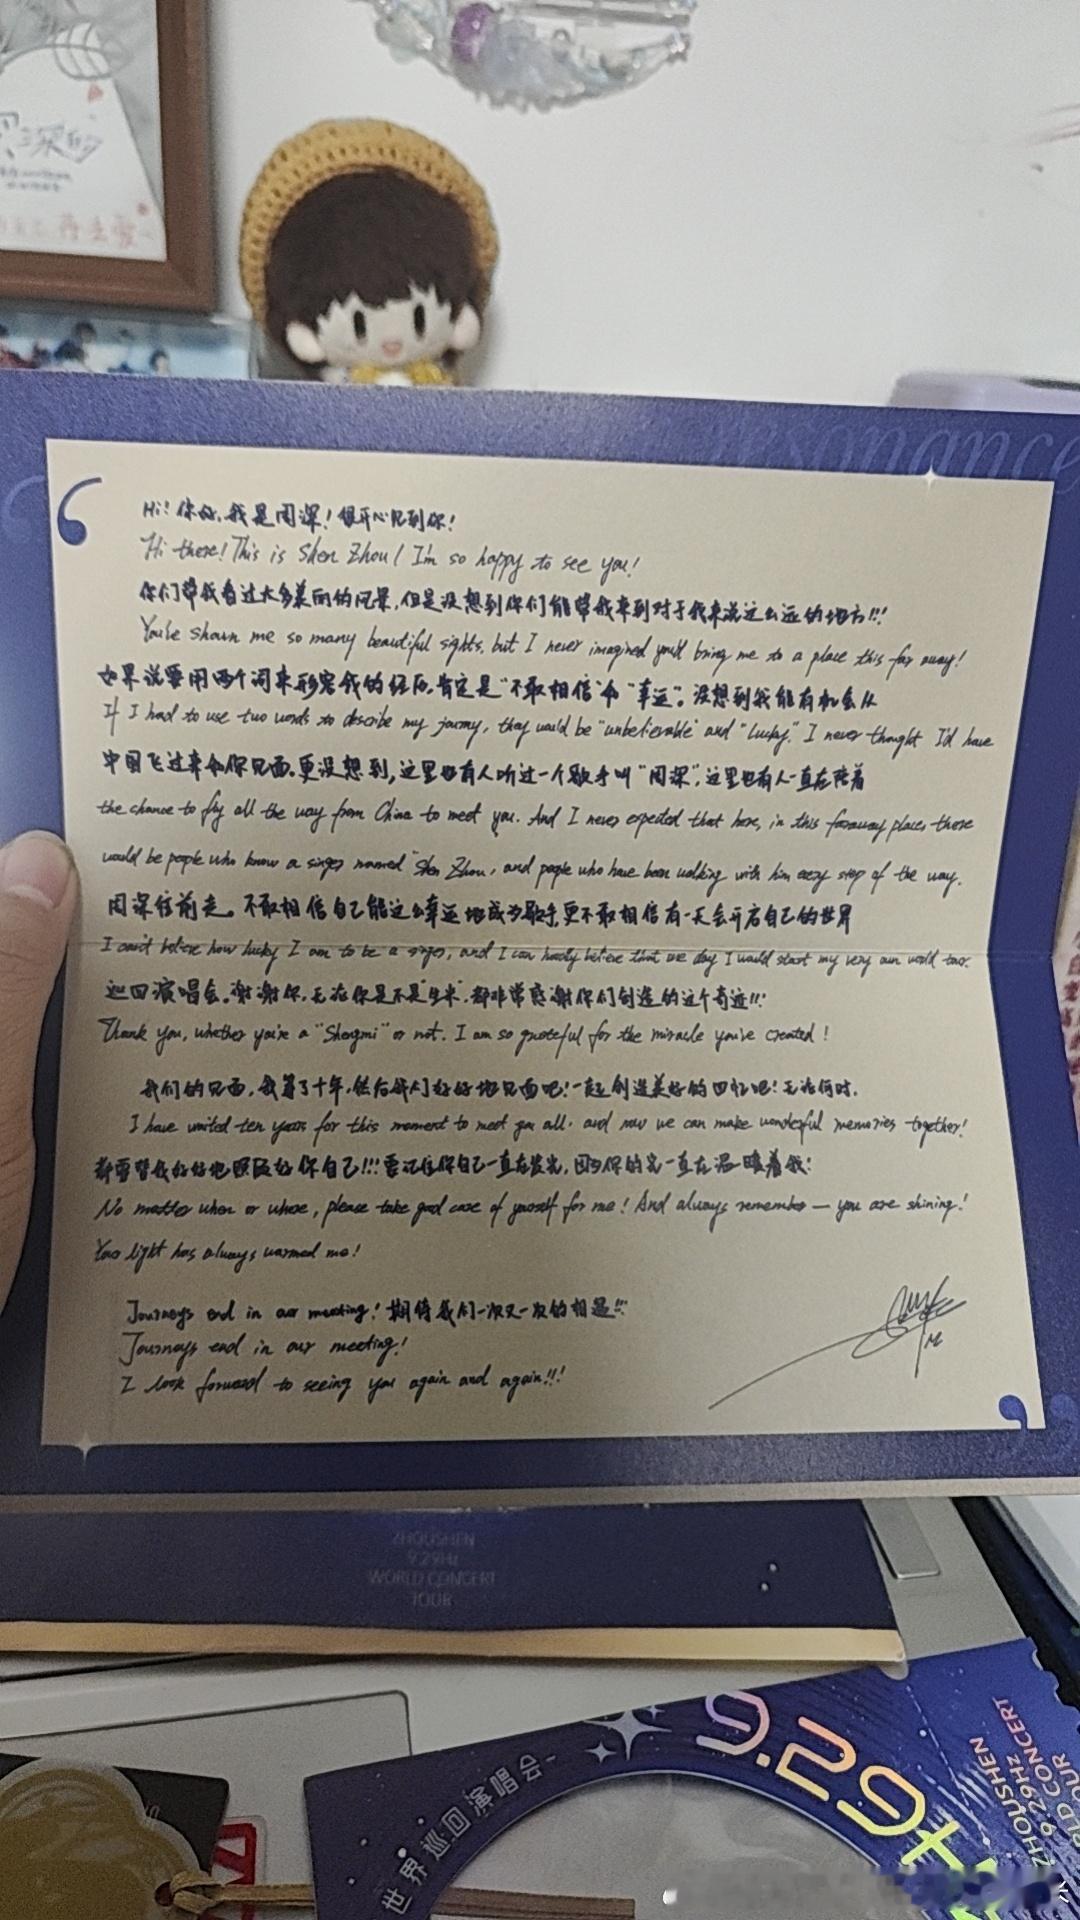 深的
再去爱~
Resonance
Hi! 你好,我是周深!很开心见到你!
Hi there! This is Shen Zhou! I'm so happy to see you!
你们带我看过太多美丽的风景,但是没想到你们能带我来到对于我来说这么远的地方!!!
You've shown me so many beautiful sights, but I never imagined you'd bring me to a place this far away!
如果说要用两个词来形容我的经历,肯定是"不敢相信"和"幸运"。没想到我能有机会从
If I had to use two words to describe my journey, they would be "unbelievable" and "Lucky". I never thought I'd have
中国飞过来和你见面。更没想到,这里也有人听过一个歌手叫"周深",这里也有人一直在陪着
the chance to fly all the way from China to meet you. And I never expected that here, in this faraway places there
would be people who know a singer named "Shen Zhou, and people who have been walking with him every step of the way.
周深往前走。不敢相信自己能这么幸运地成为歌手,更不敢相信有一天会开启自己的世界
I can't believe how lucky I am to be a singer, and I can hardly believe that one day I would start my very own world tour.
巡回演唱会。谢谢你,无论你是不是"生米",都非常感谢你们创造的这个奇迹!!!
Thank you, whether you're a "Shengmi" or not. I am so grateful for the miracle you've created!
我们的见面,我等了十年,然后我们好好地见面吧!一起创造美好的回忆吧!无论何时,
I have waited ten years for this moment to meet you all. and now we can make wonderful memories together!
都要替我好好地照顾好你自己!!!要记住你自己一直在发光,因为你的光一直在温暖着我!
No matter when or where, please take good care of yourself for me! And always remember — you are shining!
Your light has always warmed me!
Journeys end in our meeting! 期待我们一次又一次的相遇!!!
Journeys end in our meeting!
I look forward to seeing you again and again!!!
ZHOUSHEN
9.29Hz
WORLD CONCERT
TOUR
世界巡回演唱会
9.29Hz
ZHOUSHEN
9.29Hz
WORLD CONCERT
TOUR